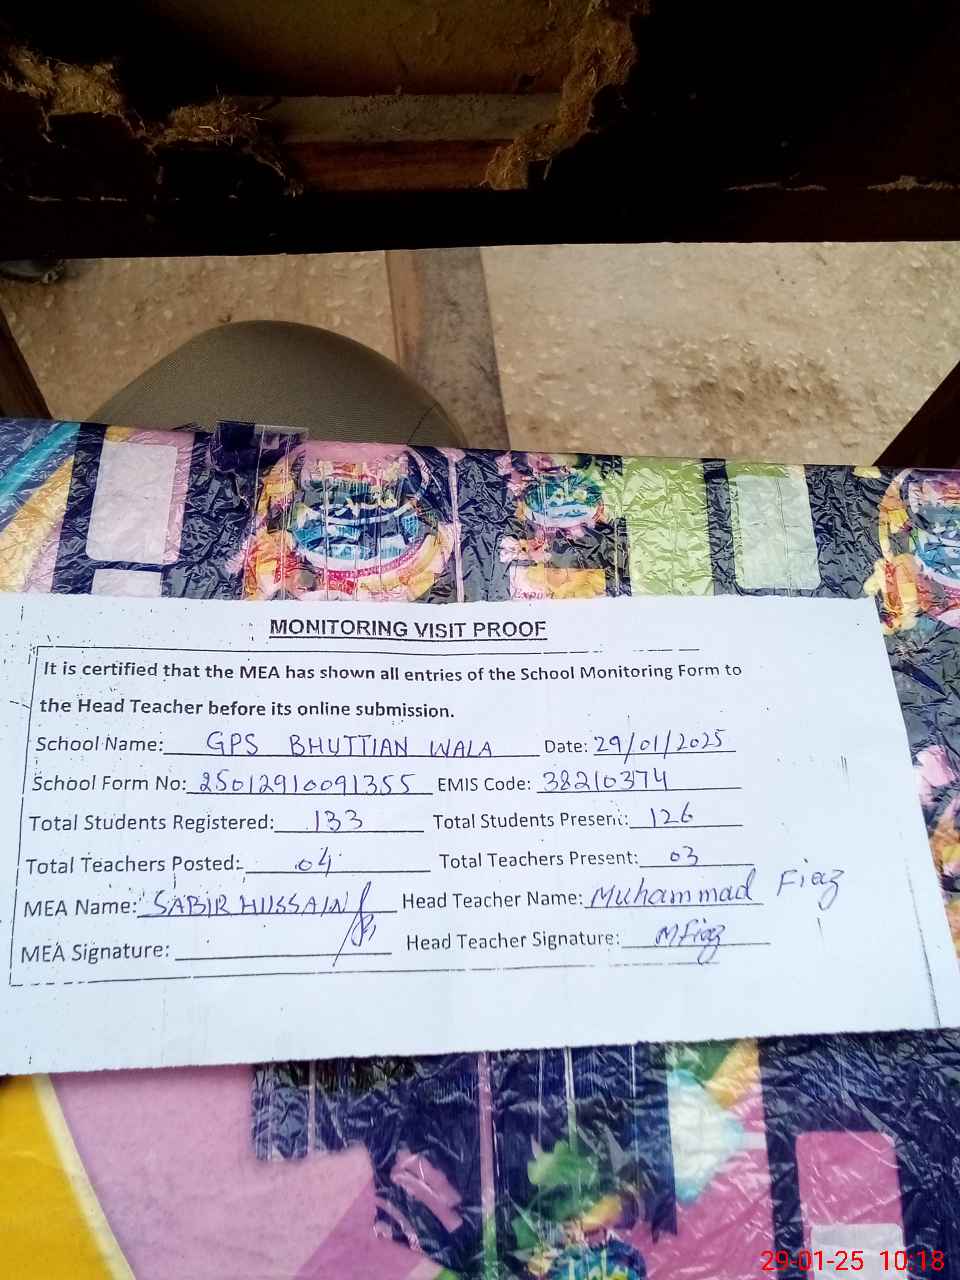 Expo
MONITORING VISIT PROOF
It is certified that the MEA has shown all entries of the School Monitoring Form to
the Head Teacher before its online submission.
School Name: GPS BHUTTIAN WALA Date: 29/01/2025
School Form No: 25012910091355 EMIS Code: 38210374
Total Students Registered: 133 Total Students Present: 126
Total Teachers Posted: 04 Total Teachers Present: 03
MEA Name: SABIR HUSSAIN Head Teacher Name: Muhammad Fiaz
MEA Signature: Head Teacher Signature: M Fiaz
29-01-25 10:18